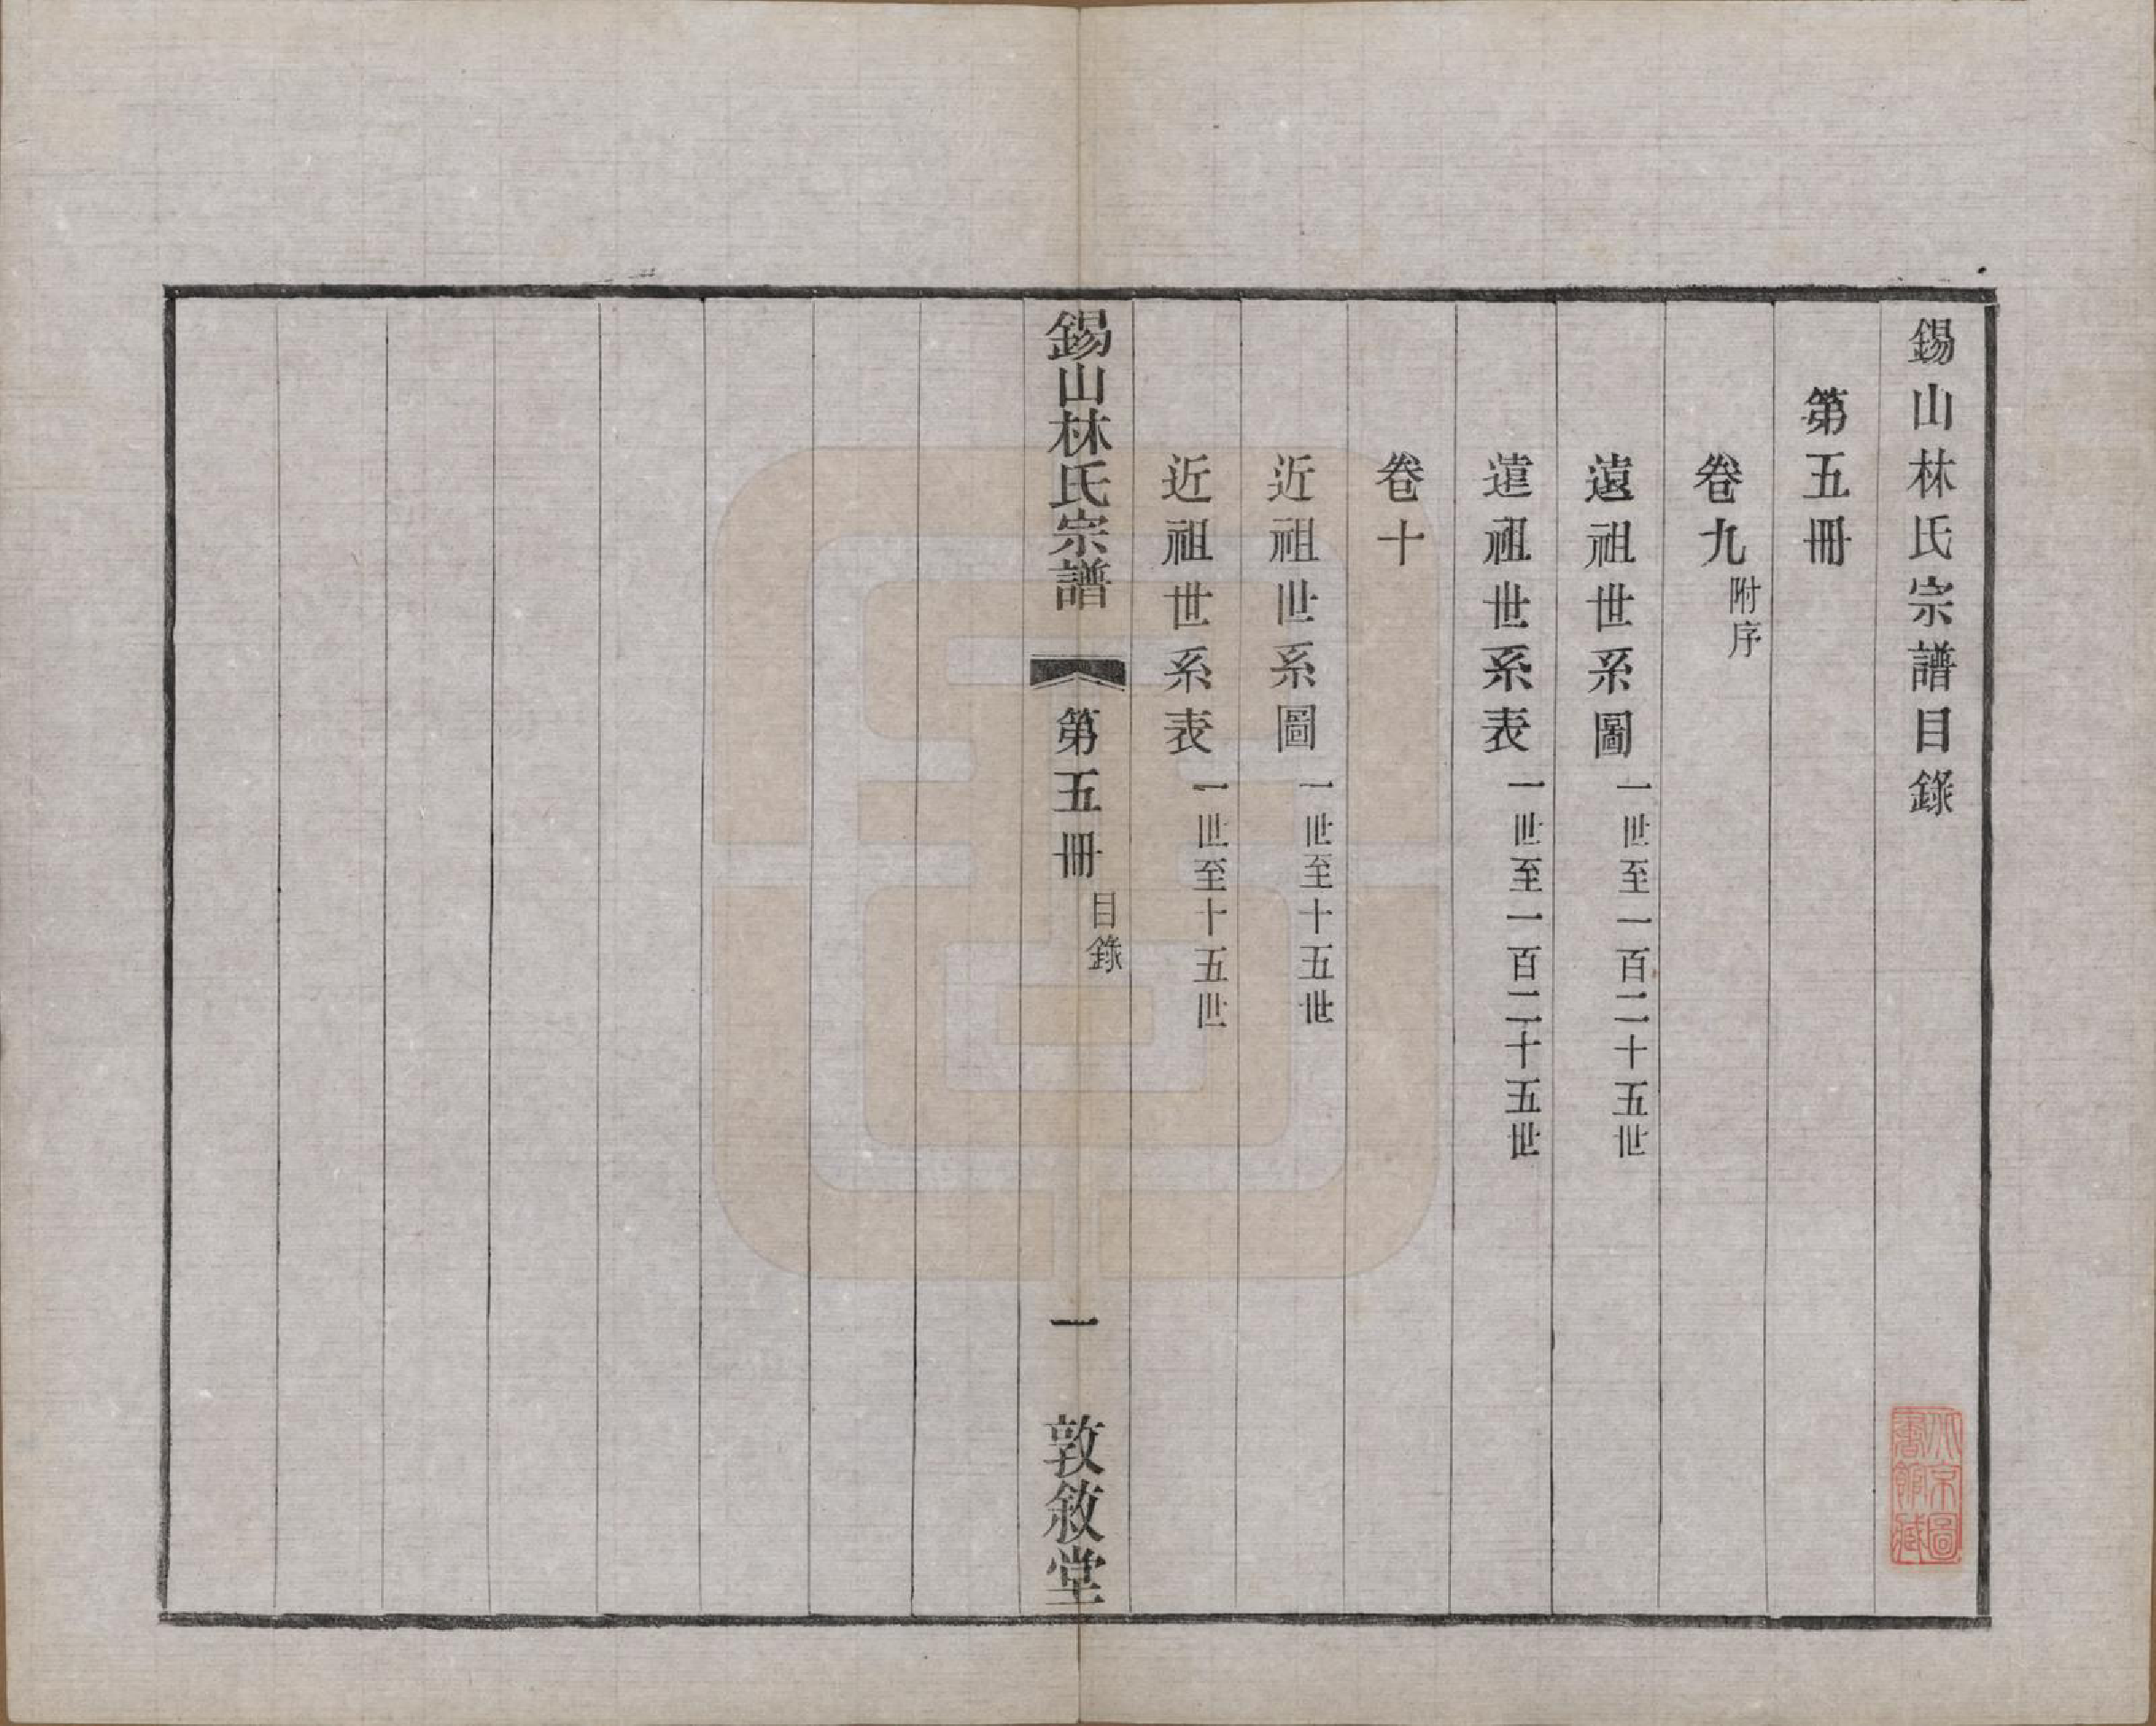 錫山林氏宗譜目錄
第五冊
卷九附序
遠祖世系圖一世至一百二十五世
遠祖世系表一世至一百二十五世
卷十
近祖世系圖一世至十五世
近祖世系表一世至十五世
錫山林氏宗譜 第五冊目錄 一 敦敘堂
北京圖
書館藏